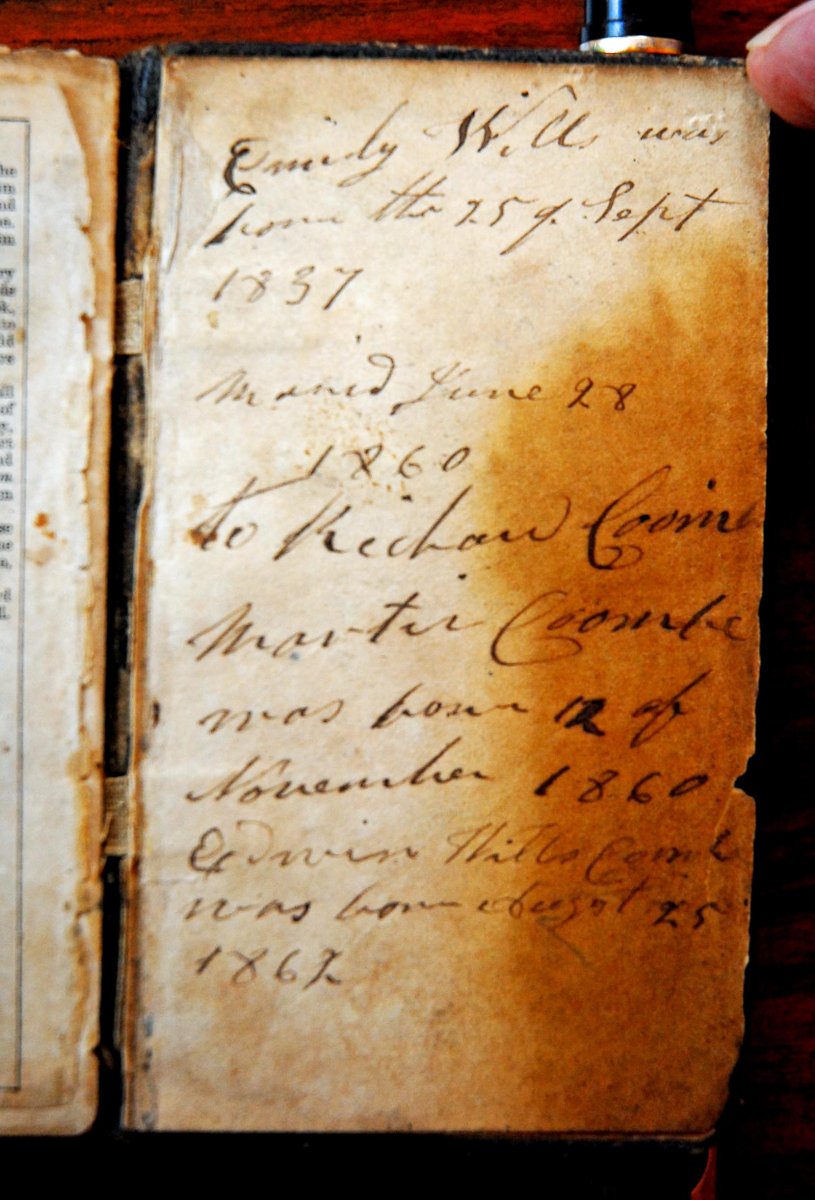 Emily Wills was
born the 25 of Sept
1837
Maried June 28
1860
to Richard Coombe
Martin Coombe
was born 12 of
November 1860
Edwin Wills Coombe
was born August 25
1862